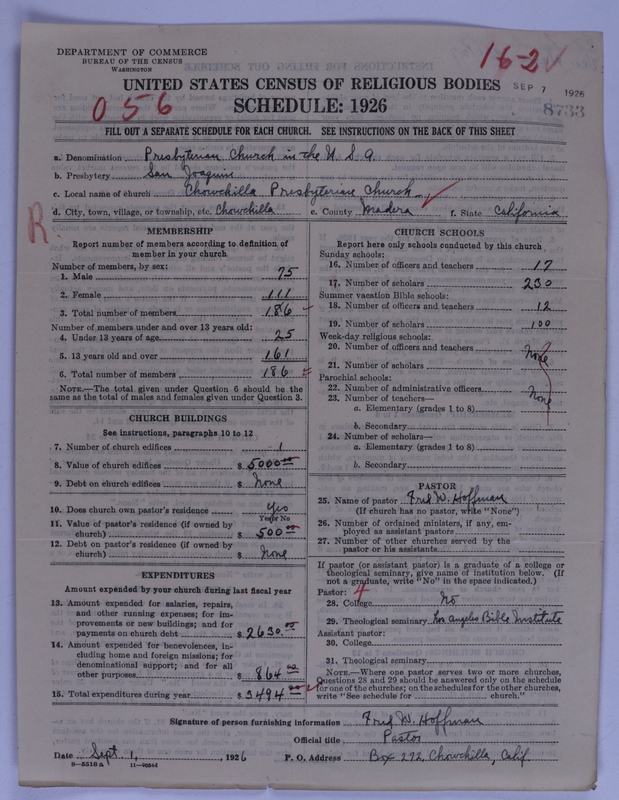 DEPARTMENT OF COMMERCE
BUREAU OF THE CENSUS
WASHINGTON
16-2
UNITED STATES CENSUS OF RELIGIOUS BODIES
SEP 7 1926
056
SCHEDULE: 1926
8733
FILL OUT A SEPARATE SCHEDULE FOR EACH CHURCH. SEE INSTRUCTIONS ON THE BACK OF THIS SHEET
a. Denomination Presbyterian Church in the U.S.A.
b. Presbytery San Joaquin
c. Local name of church Chowchilla Presbyterian Church
d. City, town, village, or township, etc. Chowchilla e. County Madera f. State California
R
MEMBERSHIP
Report number of members according to definition of
member in your church
Number of members, by sex:
1. Male 75
2. Female 111
3. Total number of members 186
Number of members under and over 13 years old:
4. Under 13 years of age 25
5. 13 years old and over 161
6. Total number of members 186
NOTE.—The total given under Question 6 should be the
same as the total of males and females given under Question 3.
CHURCH BUILDINGS
See instructions, paragraphs 10 to 12
7. Number of church edifices 1
8. Value of church edifices $ 5000 00
9. Debt on church edifices $ None
10. Does church own pastor's residence yes
Yes or No
11. Value of pastor's residence (if owned by
church) $ 500 00
12. Debt on pastor's residence (if owned by
church) $ None
EXPENDITURES
Amount expended by your church during last fiscal year
13. Amount expended for salaries, repairs,
and other running expenses; for im-
provements or new buildings; and for
payments on church debt $ 2630.00
14. Amount expended for benevolences, in-
cluding home and foreign missions; for
denominational support; and for all
other purposes $ 864 00
15. Total expenditures during year $ 3494 00
CHURCH SCHOOLS
Report here only schools conducted by this church
Sunday schools:
16. Number of officers and teachers 17
17. Number of scholars 230
Summer vacation Bible schools:
18. Number of officers and teachers 12
19. Number of scholars 100
Week-day religious schools:
20. Number of officers and teachers None
21. Number of scholars
Parochial schools:
22. Number of administrative officers None
23. Number of teachers—
a. Elementary (grades 1 to 8)
b. Secondary
24. Number of scholars—
a. Elementary (grades 1 to 8)
b. Secondary
PASTOR
25. Name of pastor Fred W. Hoffman
(If church has no pastor, write "None")
26. Number of ordained ministers, if any, em-
ployed as assistant pastors
27. Number of other churches served by the
pastor or his assistants
If pastor (or assistant pastor) is a graduate of a college or
theological seminary, give name of institution below. (If
not a graduate, write "No" in the space indicated.)
Pastor: 4
28. College No
29. Theological seminary Los Angeles Bible Institute
Assistant pastor:
30. College
31. Theological seminary
NOTE.—Where one pastor serves two or more churches,
Questions 28 and 29 should be answered only on the schedule
for one of the churches; on the schedules for the other churches,
write "See schedule for church."
Signature of person furnishing information Fred W. Hoffman
Official title Pastor
Date Sept 1, 1926 P. O. Address Box 292, Chowchilla, Calif
8—5518 a 11—9054d